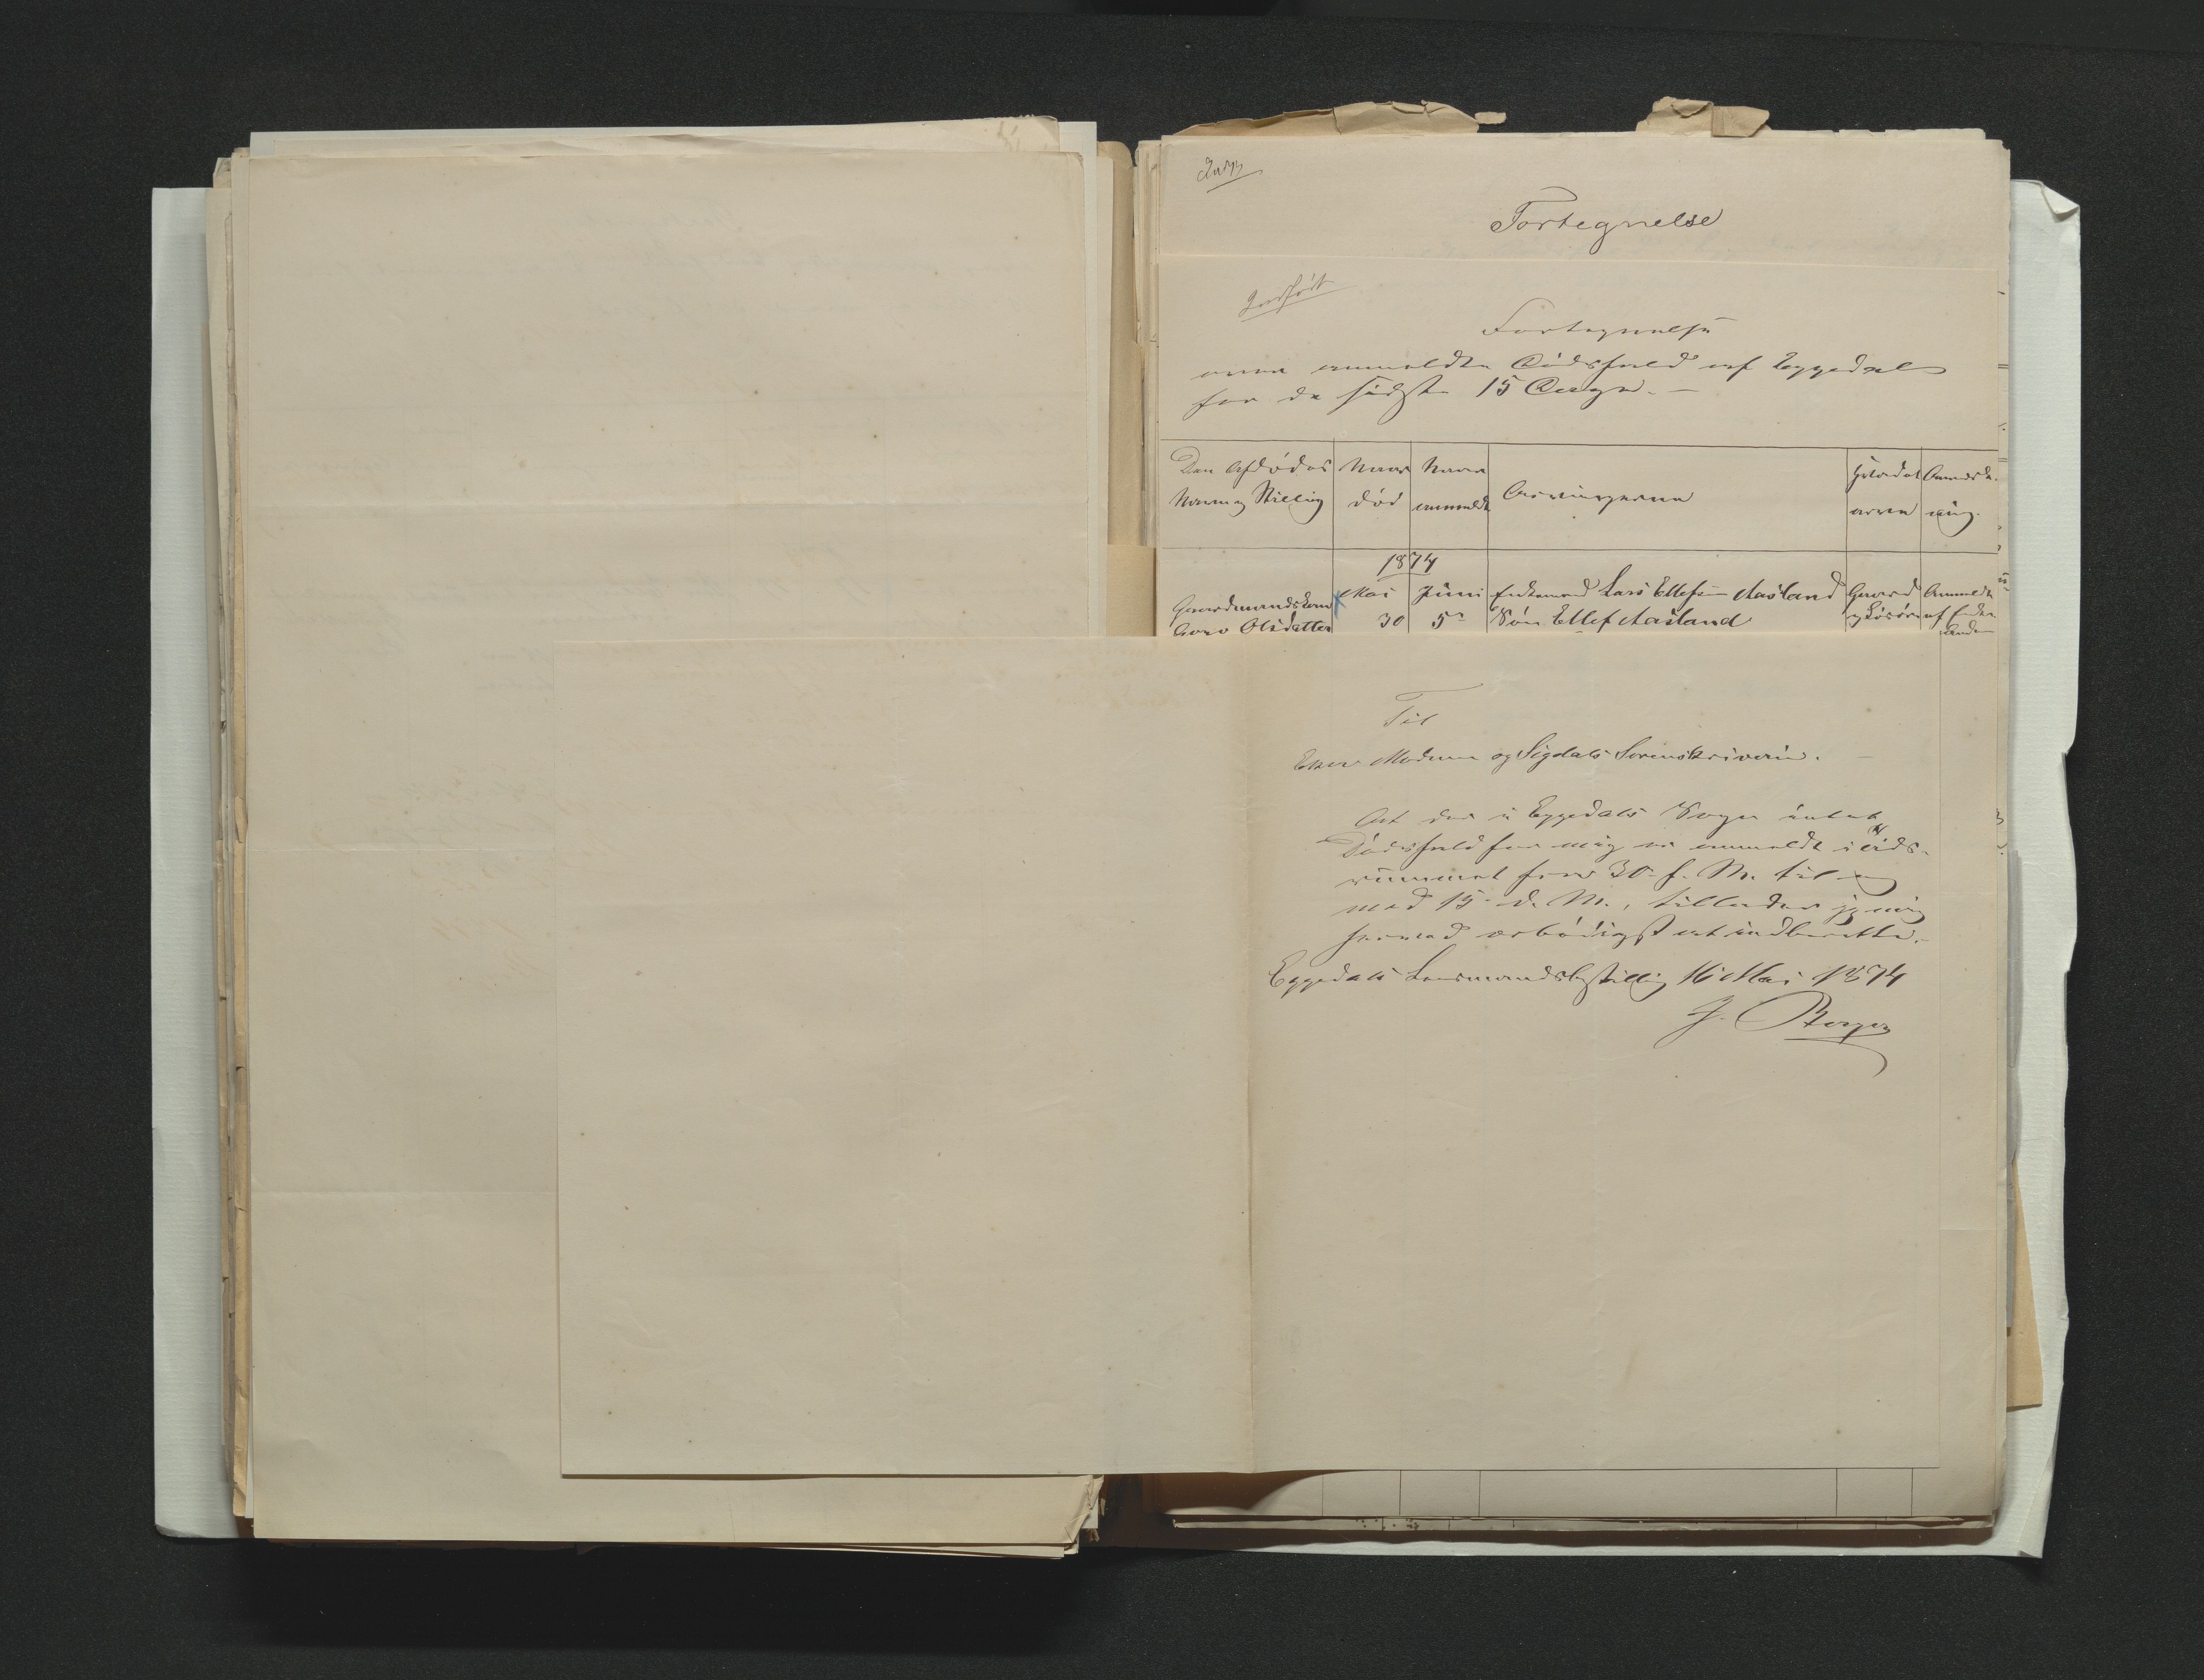 Fortegnelse
Indført
Fortegnelse
over anmeldte Dødsfald af Eggedal
for de sidste 15 Dage. –
Den Afdødes Navn og Stilling
Naar død
Naar anmeldt
Arvingerne
Hvori det arves
Anmærkning.
1874
Gaardmandskone Mai Juni Enkemand Lars Ellefsen Aasland Gaard Anmeldt
Goro Olsdatter 30 5te Søn Ellef Aasland og Løsøre af Enke-
manden
Til
Eker Modum og Sigdals Sorenskriveri. –
At der i Eggedals Sogn intet
Dødsfald for mig er anmeldt i Tids-
rummet fra 30. f. M. til og
med 15. d. M., tillader jeg mig
herved ærbødigst at indberette. –
Eggedals Lensmandsbestilling 16 Mai 1874